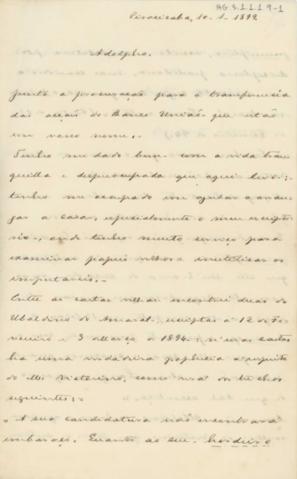 AG.S.1.1.1.9-1
Piracicaba, 10-1-1899.
Adolpho.
Junto a procuração para a transferencia
das acções do Banco União que estão
em nosso nome.
Tenho me dado bem com a vida tran-
quilla e despreocupada que aqui levo;
tenho me occupado em ajudar a arran-
jar a casa, especialmente o meu escripto-
rio, onde tenho muito serviço para
examinar papeis velhos e inutilisar os
imprestaveis.
Entre as cartas velhas encontrei duas do
Ubaldino do Amaral, escriptas a 12 de Fe-
vereiro e 3 de Março de 1894; n'essas cartas
ha uma verdadeira prophecia a respeito
do, como verá dos trechos
seguintes:
"A sua candidatura não encontrará
embaraço. Quanto ao seu